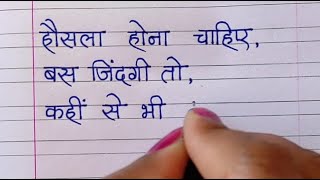 हौसला होना चाहिए,
बस जिंदगी तो,
कहीं से भी